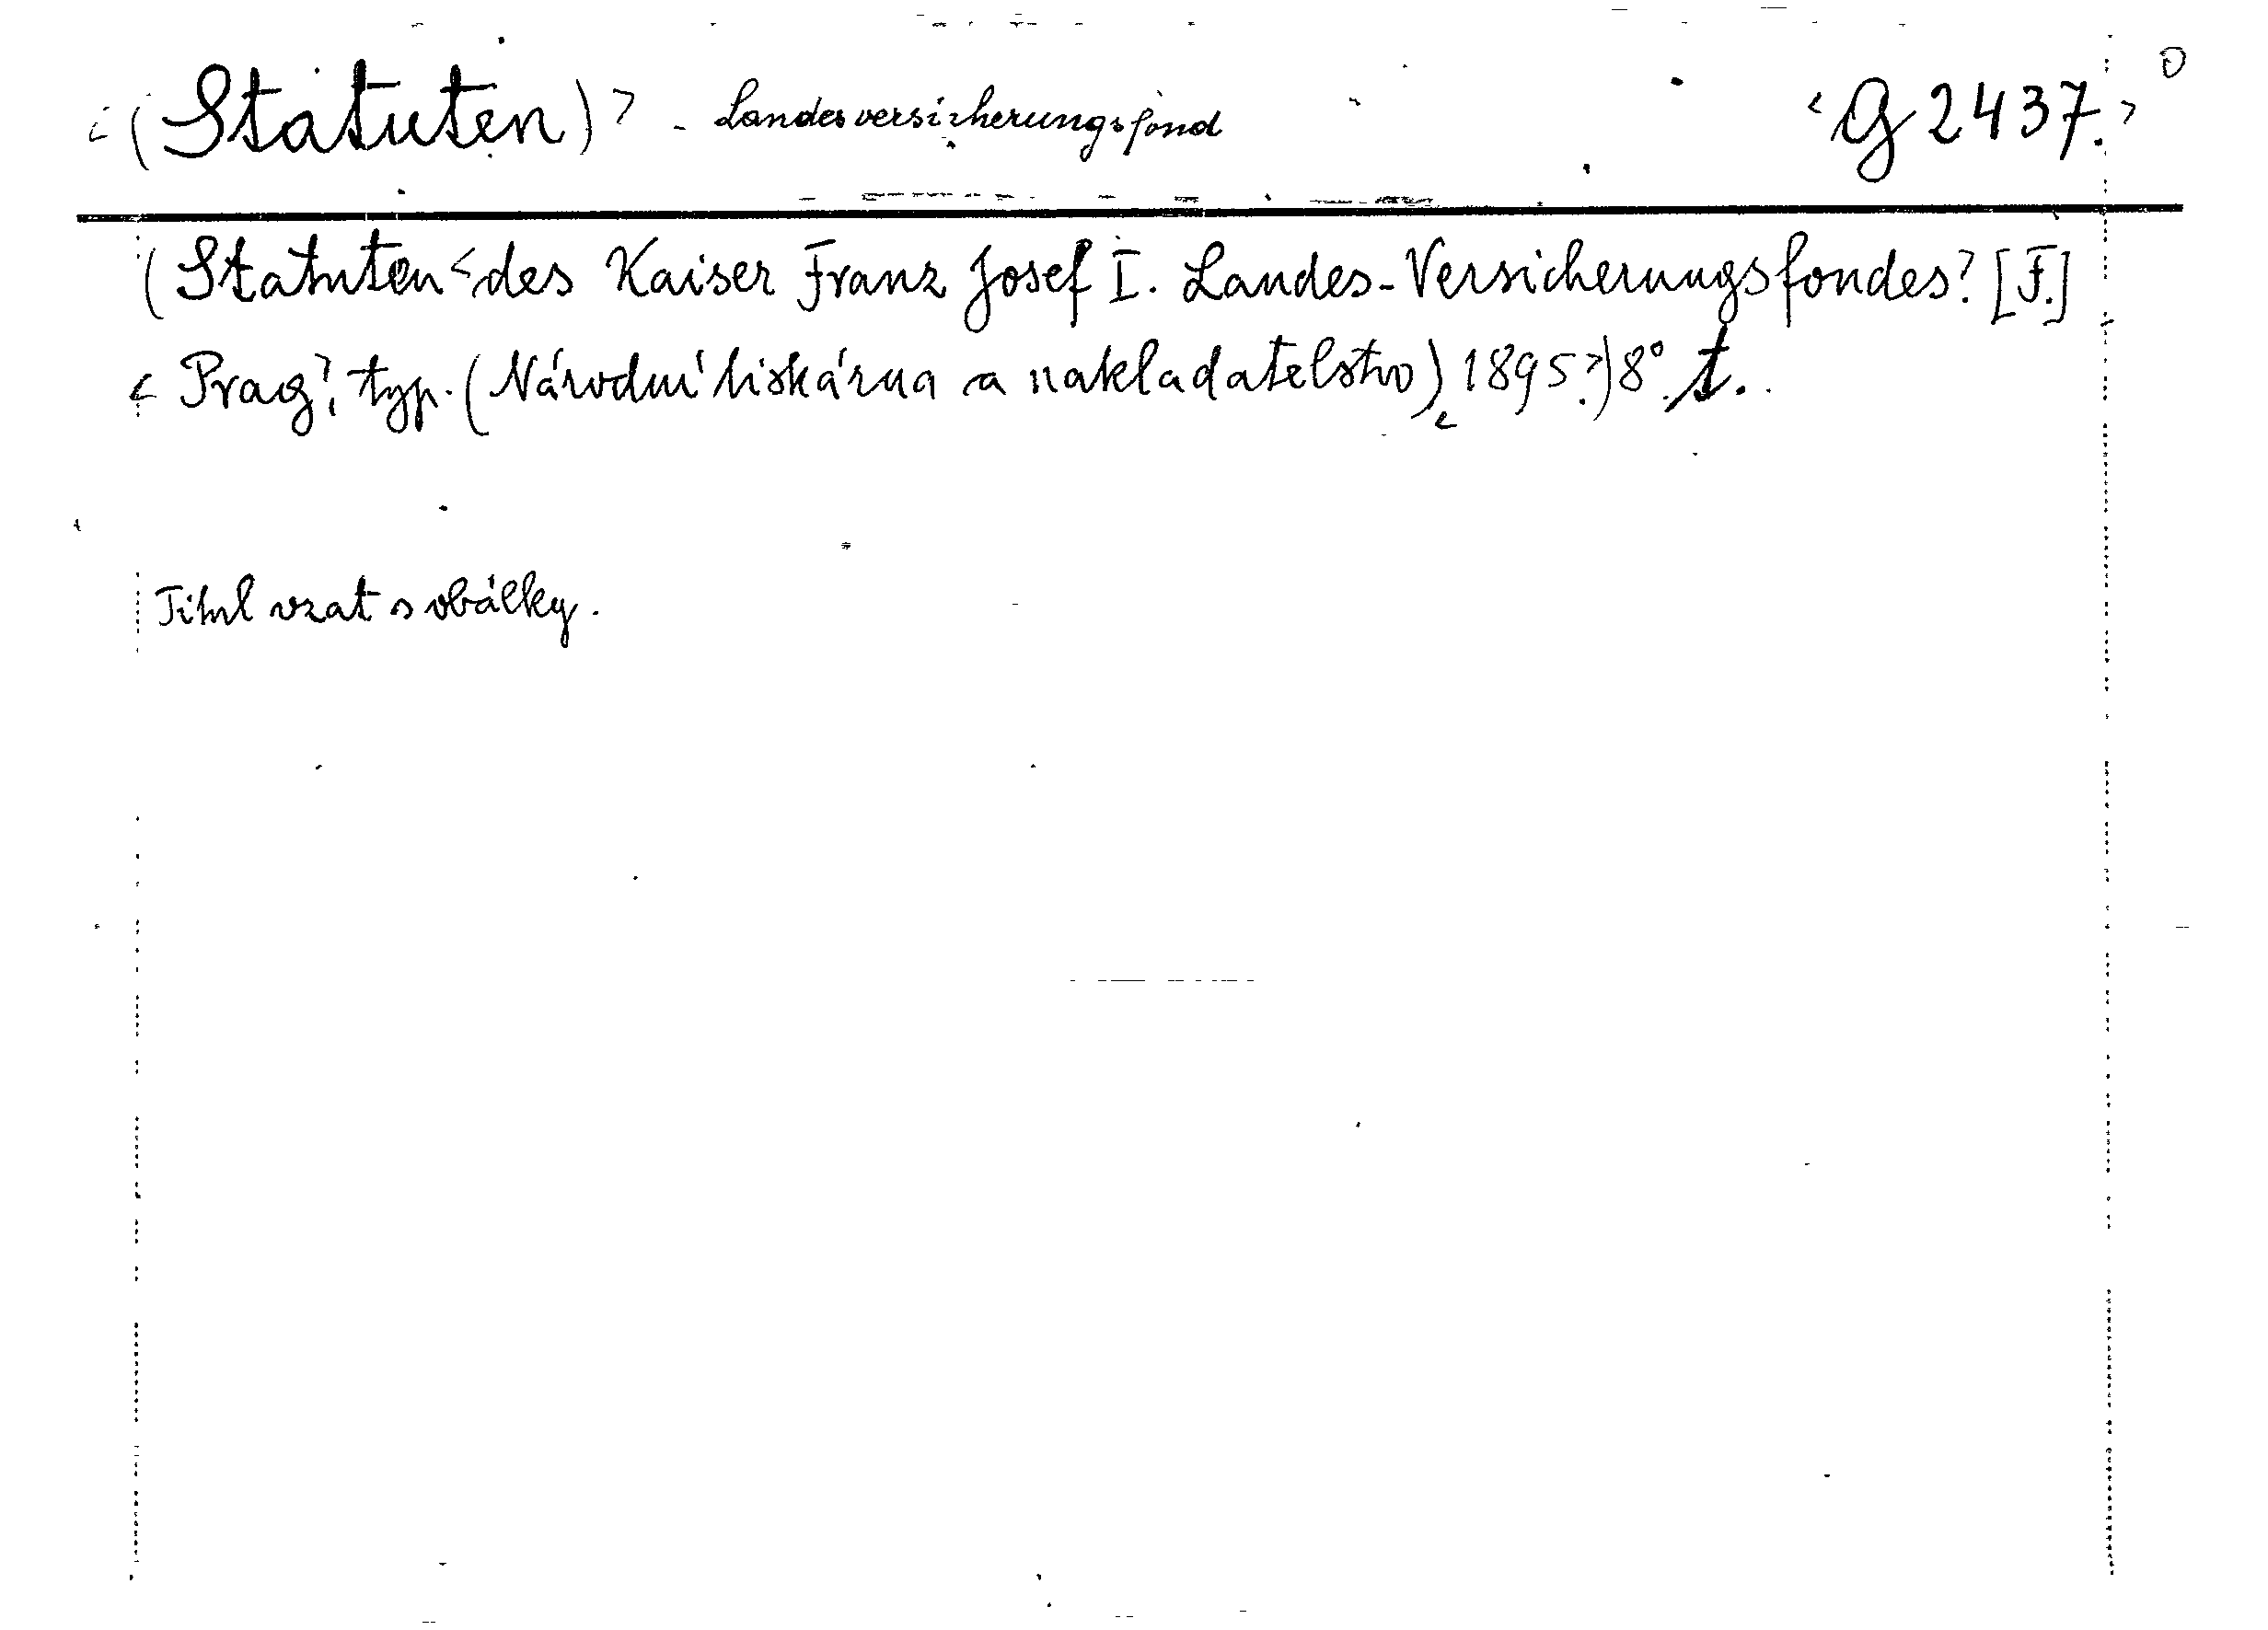 <(Statuten)> - Landesversicherungsfond <G 2437.> 0
(Statuten <des Kaiser Franz Josef I. Landes-Versicherungsfondes> [F.]
<Prag>, typ. (Národní tiskárna a nakladatelstvo) < 1895.>) 8°. t.
Titul vzat s obálky.